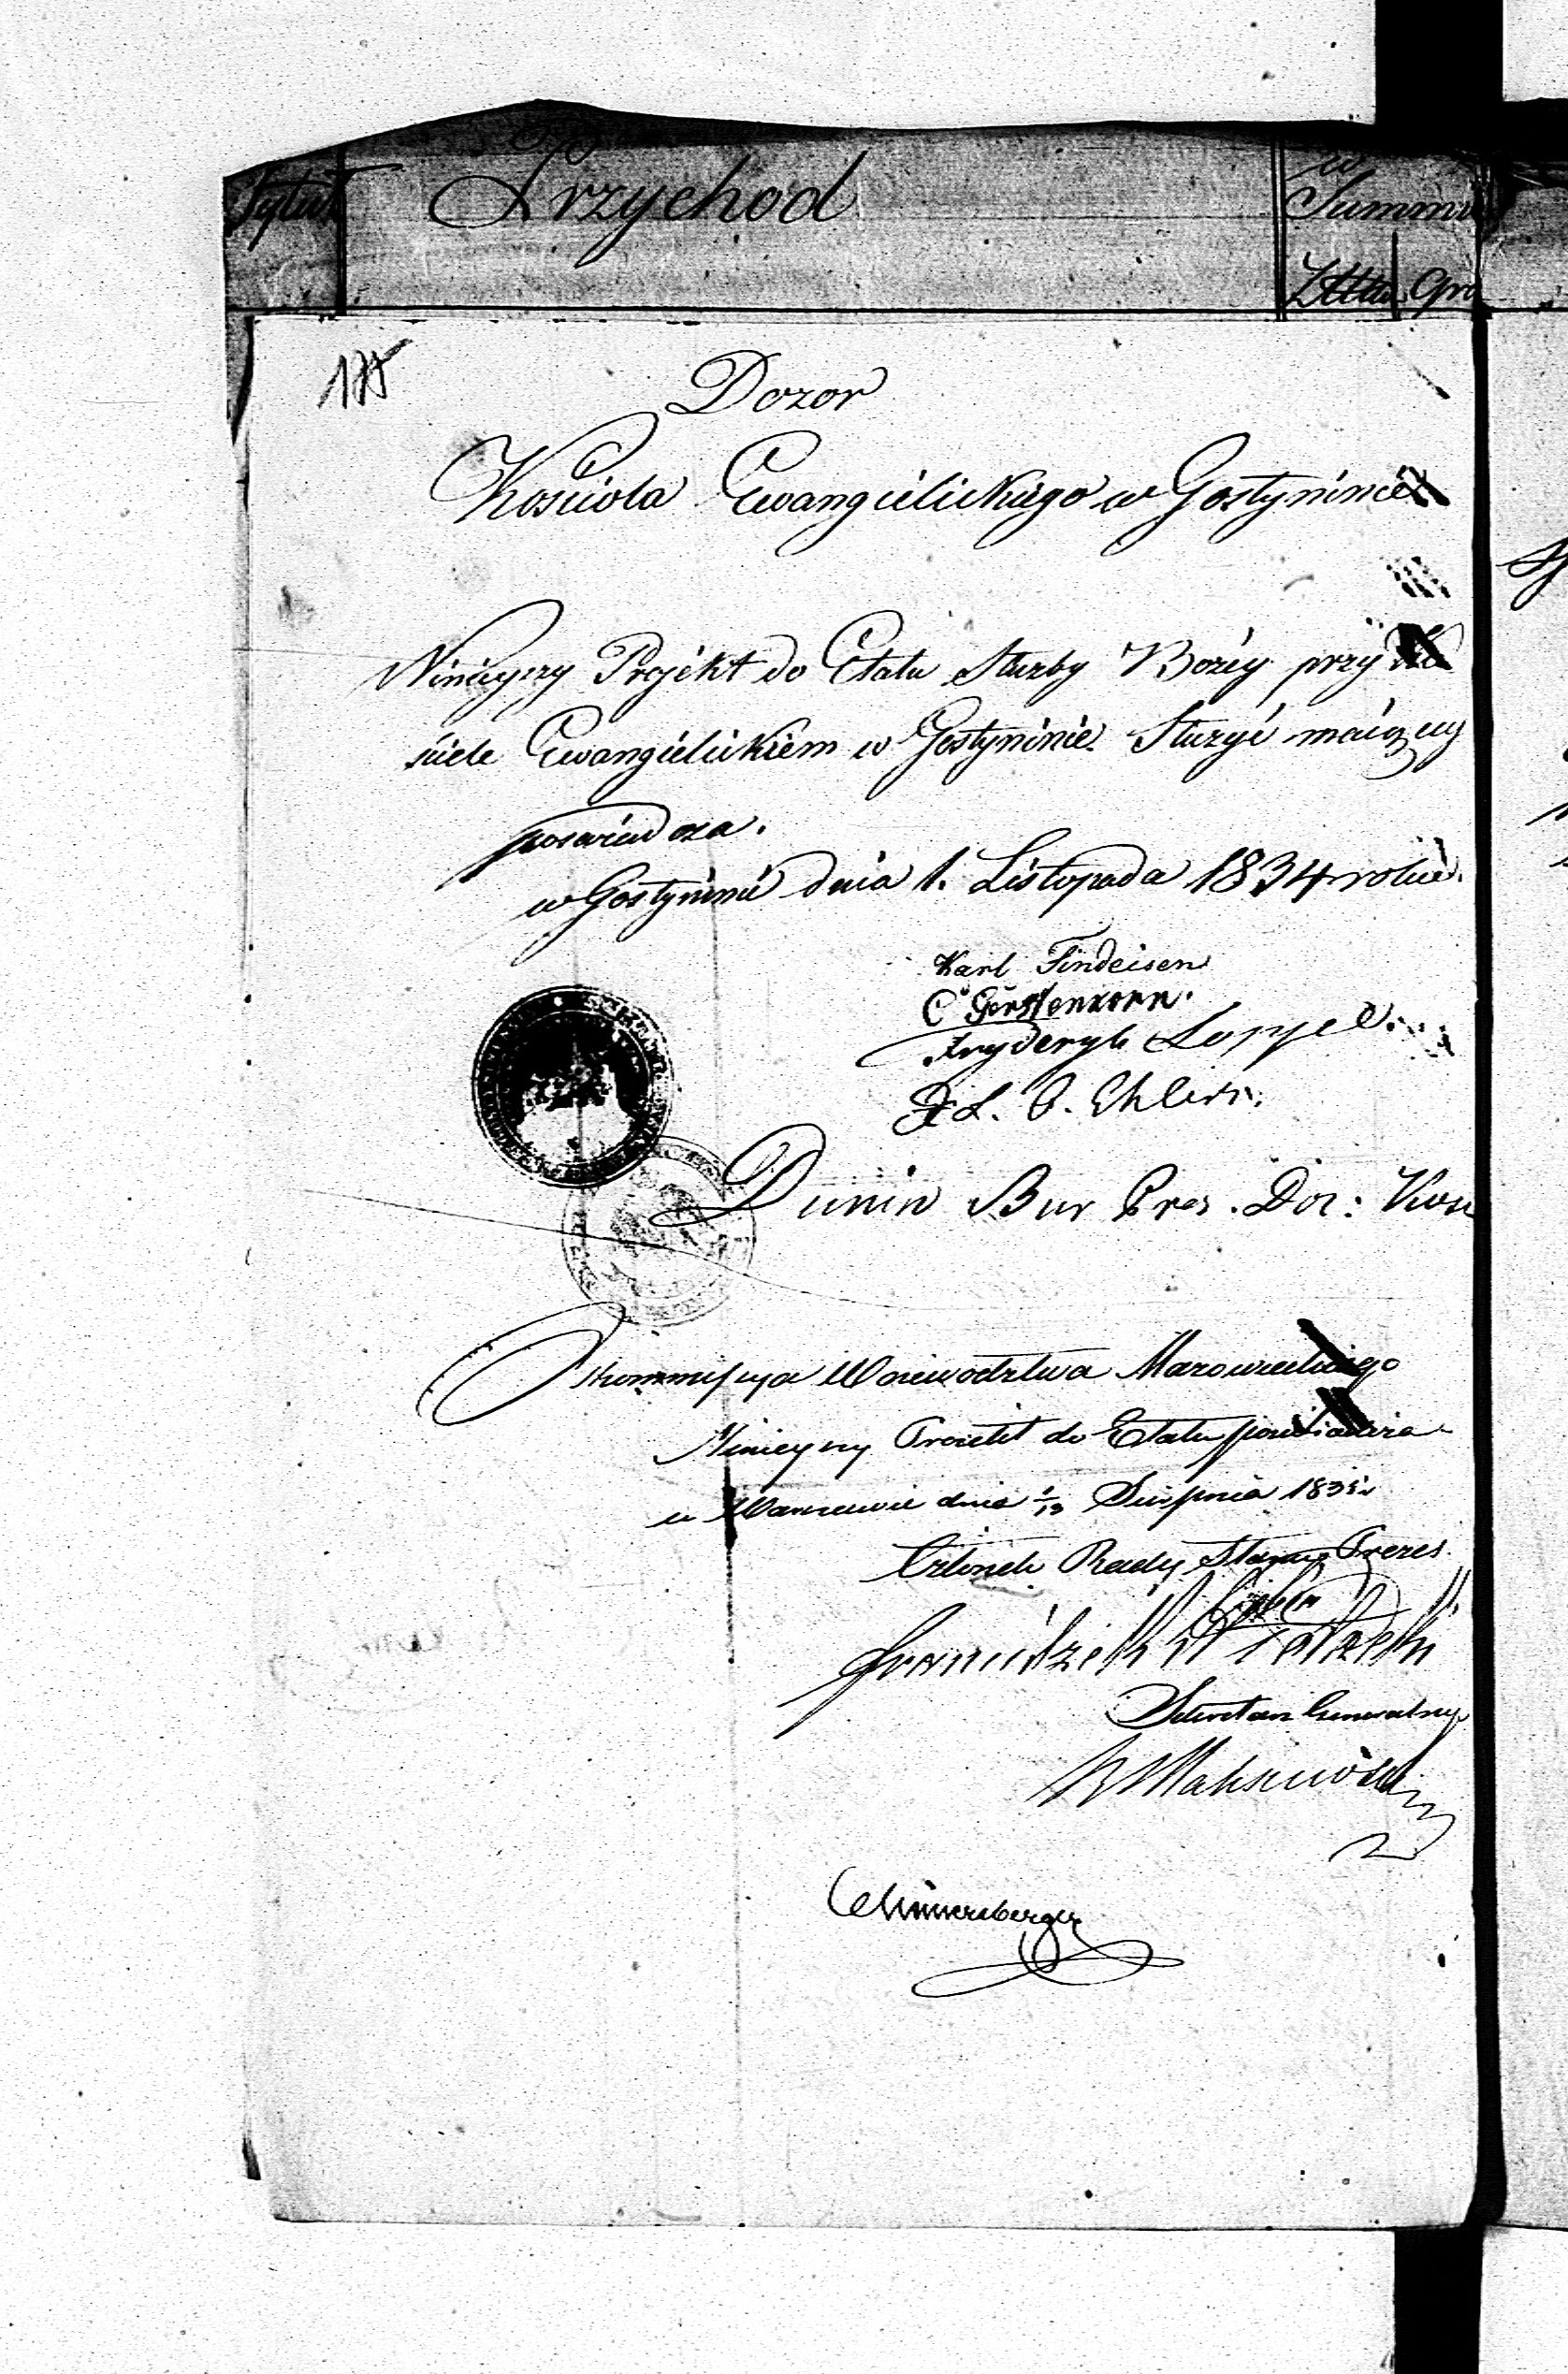 Tytuł Przychod w Summie
Złtu Gro
175
Dozor
Kościoła Ewangielickiego w Gostyninie
Ninieyszy Projekt do Etatu Służby Bożéy przy Ko
ściele Ewangielickiem w Gostyninie Służyć maiący
poswiadcza.
w Gostyninie dnia 1. Listopada 1834 roku.
Karl Findeisen
C Gerstenkorn.
Fryderyk Loppe
L. O. Ehlert.
Dunin Bur Prez. Doz: Kosc
Kommissya Woiewodztwa Mazowieckiego
Ninieyszy Proiekt do Etatu poswiadcza
w Warszawie dnia 1/13 Sierpnia 1835 r
Członek Rady Stanu Prezes
Sekretarz Generalny